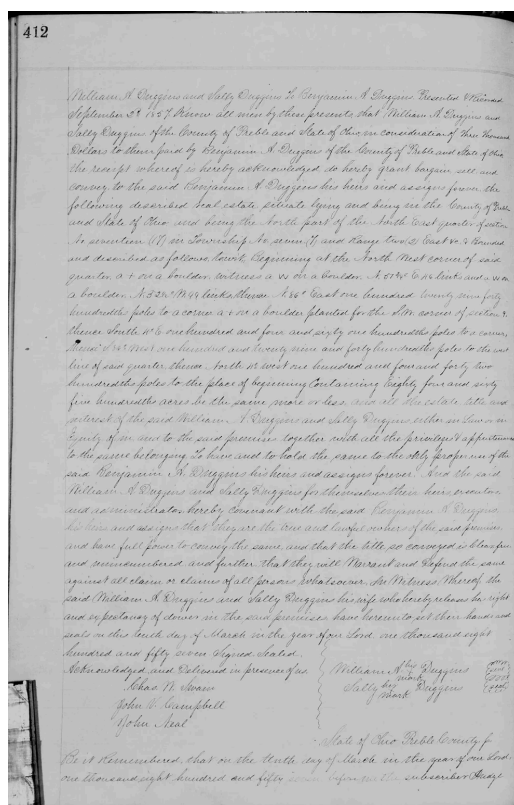 412
William A Duggins and Sally Duggins To Benjamin A Duggins Presented & Received
September 1857. Know all men by these presents that William A Duggins and
Sally Duggins of the County of Preble and State of Ohio in consideration of Three Thousand
Dollars to them paid by Benjamin A Duggins of the County of Preble and State of Ohio
the receipt whereof is hereby acknowledged do hereby grant bargain sell and
convey to the said Benjamin A Duggins his heirs and assigns forever the
following described real estate, situate lying and being in the County of Preble
and State of Ohio and being the North part of the North East quarter of section
No seventeen (17) in Township No seven (7) and Range two (2) East &c & Bounded
and described as follows, towit, Beginning at the North West corner of said
quarter a + on a boulder. Witness a W on a boulder. N E links and a W on
a boulder. N 32 W 49 links, thence N 86° East one hundred twenty nine forty
hundredths poles to a corner a + on a boulder planted for the S.W. corner of section 9.
thence South E one hundred and four and sixty one hundredths poles to a corner
thence S West one hundred and twenty nine and forty hundredths poles to the west
line of said quarter thence North West one hundred and four and forty two
hundredths poles to the place of beginning Containing Eighty four and sixty
five hundredths acres be the same more or less, and all the estate title and
interest of the said William A Duggins and Sally Duggins either in Law or in
Equity of in and to the said premises together with all the privileges & appurtenances
to the same belonging To have and to hold the same to the only proper use of the
said Benjamin A Duggins his heirs and assigns forever. And the said
William A Duggins and Sally Duggins for themselves their heirs executors
and administrators hereby covenant with the said Benjamin A Duggins
his heirs and assigns that they are the true and lawful owners of the said premises
and have full power to convey the same, and that the title, so conveyed is clear free
and unincumbered and further that they will Warrant and Defend the same
against all claim or claims of all persons whatsoever. In Witness Whereof the
said William A Duggins and Sally Duggins his wife who hereby release her right
and expectancy of dower in the said premises have hereunto set their hands and
seals on this tenth day of March in the year of our Lord one thousand eight
hundred and fifty seven Signed Sealed
Acknowledged and Delivered in presence of us
William A his mark Duggins seal
Chas W. Swain
Sally her mark Duggins seal
John V Campbell
John Neal
State of Ohio Preble County
Be it Remembered, that on the tenth day of March in the year of our Lord
one thousand eight hundred and fifty seven before me the subscriber Judge